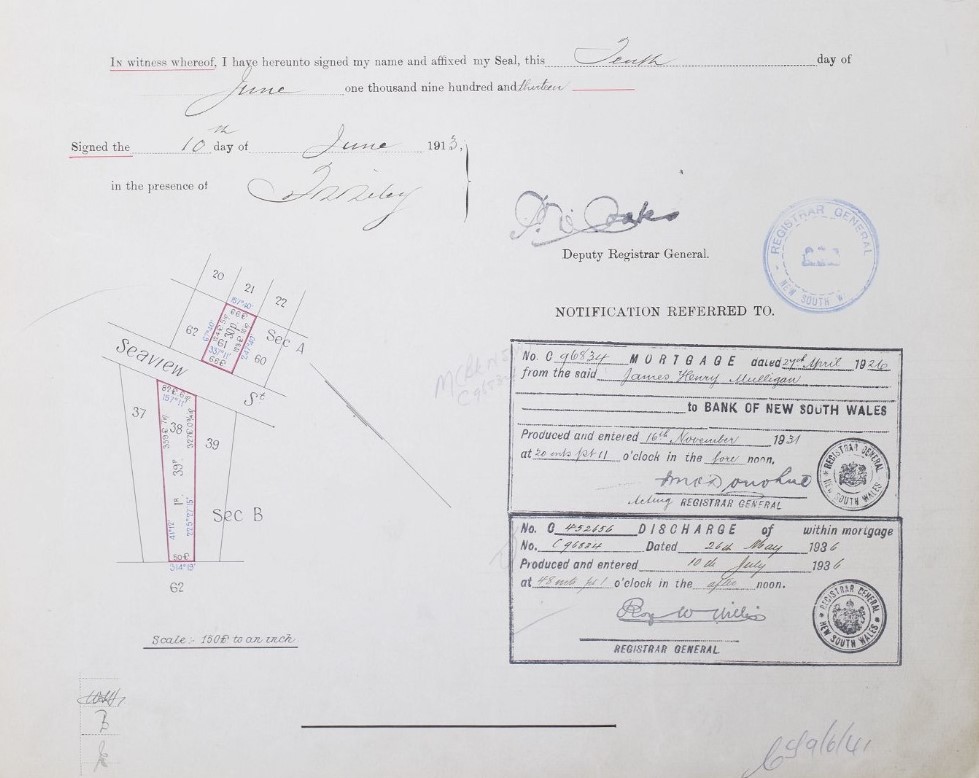 In witness whereof, I have hereunto signed my name and affixed my Seal, this Tenth day of
June one thousand nine hundred and thirteen
Signed the 10th day of June 1913,
in the presence of
Deputy Registrar General.
REGISTRAR GENERAL
NEW SOUTH W
NOTIFICATION REFERRED TO.
No. C 96834 MORTGAGE dated 27th April 1926
from the said James Henry Mulligan
to BANK OF NEW SOUTH WALES
Produced and entered 16th November 1931
at 20 mts pt 11 o'clock in the fore noon.
Acting REGISTRAR GENERAL
REGISTRAR GENERAL
NEW SOUTH WALES
No. C 452656 DISCHARGE of within mortgage
No. C96834 Dated 26th May 1936
Produced and entered 10th July 1936
at 48 mts pt 1 o'clock in the after noon.
Roy W Willis
REGISTRAR GENERAL.
REGISTRAR GENERAL
NEW SOUTH WALES
20
21
22
62
61
30p
60
Sec A
Seaview St
37
38
39
39p
1R
Sec B
50ft
314°19'
62
Scale :- 150ft to an inch